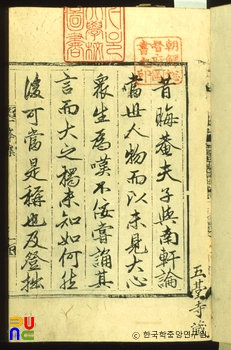 昔晦菴夫子與南軒論
當世人物而以未見大心
衆生為嘆不佞嘗誦其
言而大之獨未知如何然
後可當是稱也及登拙
© 한국학중앙연구원